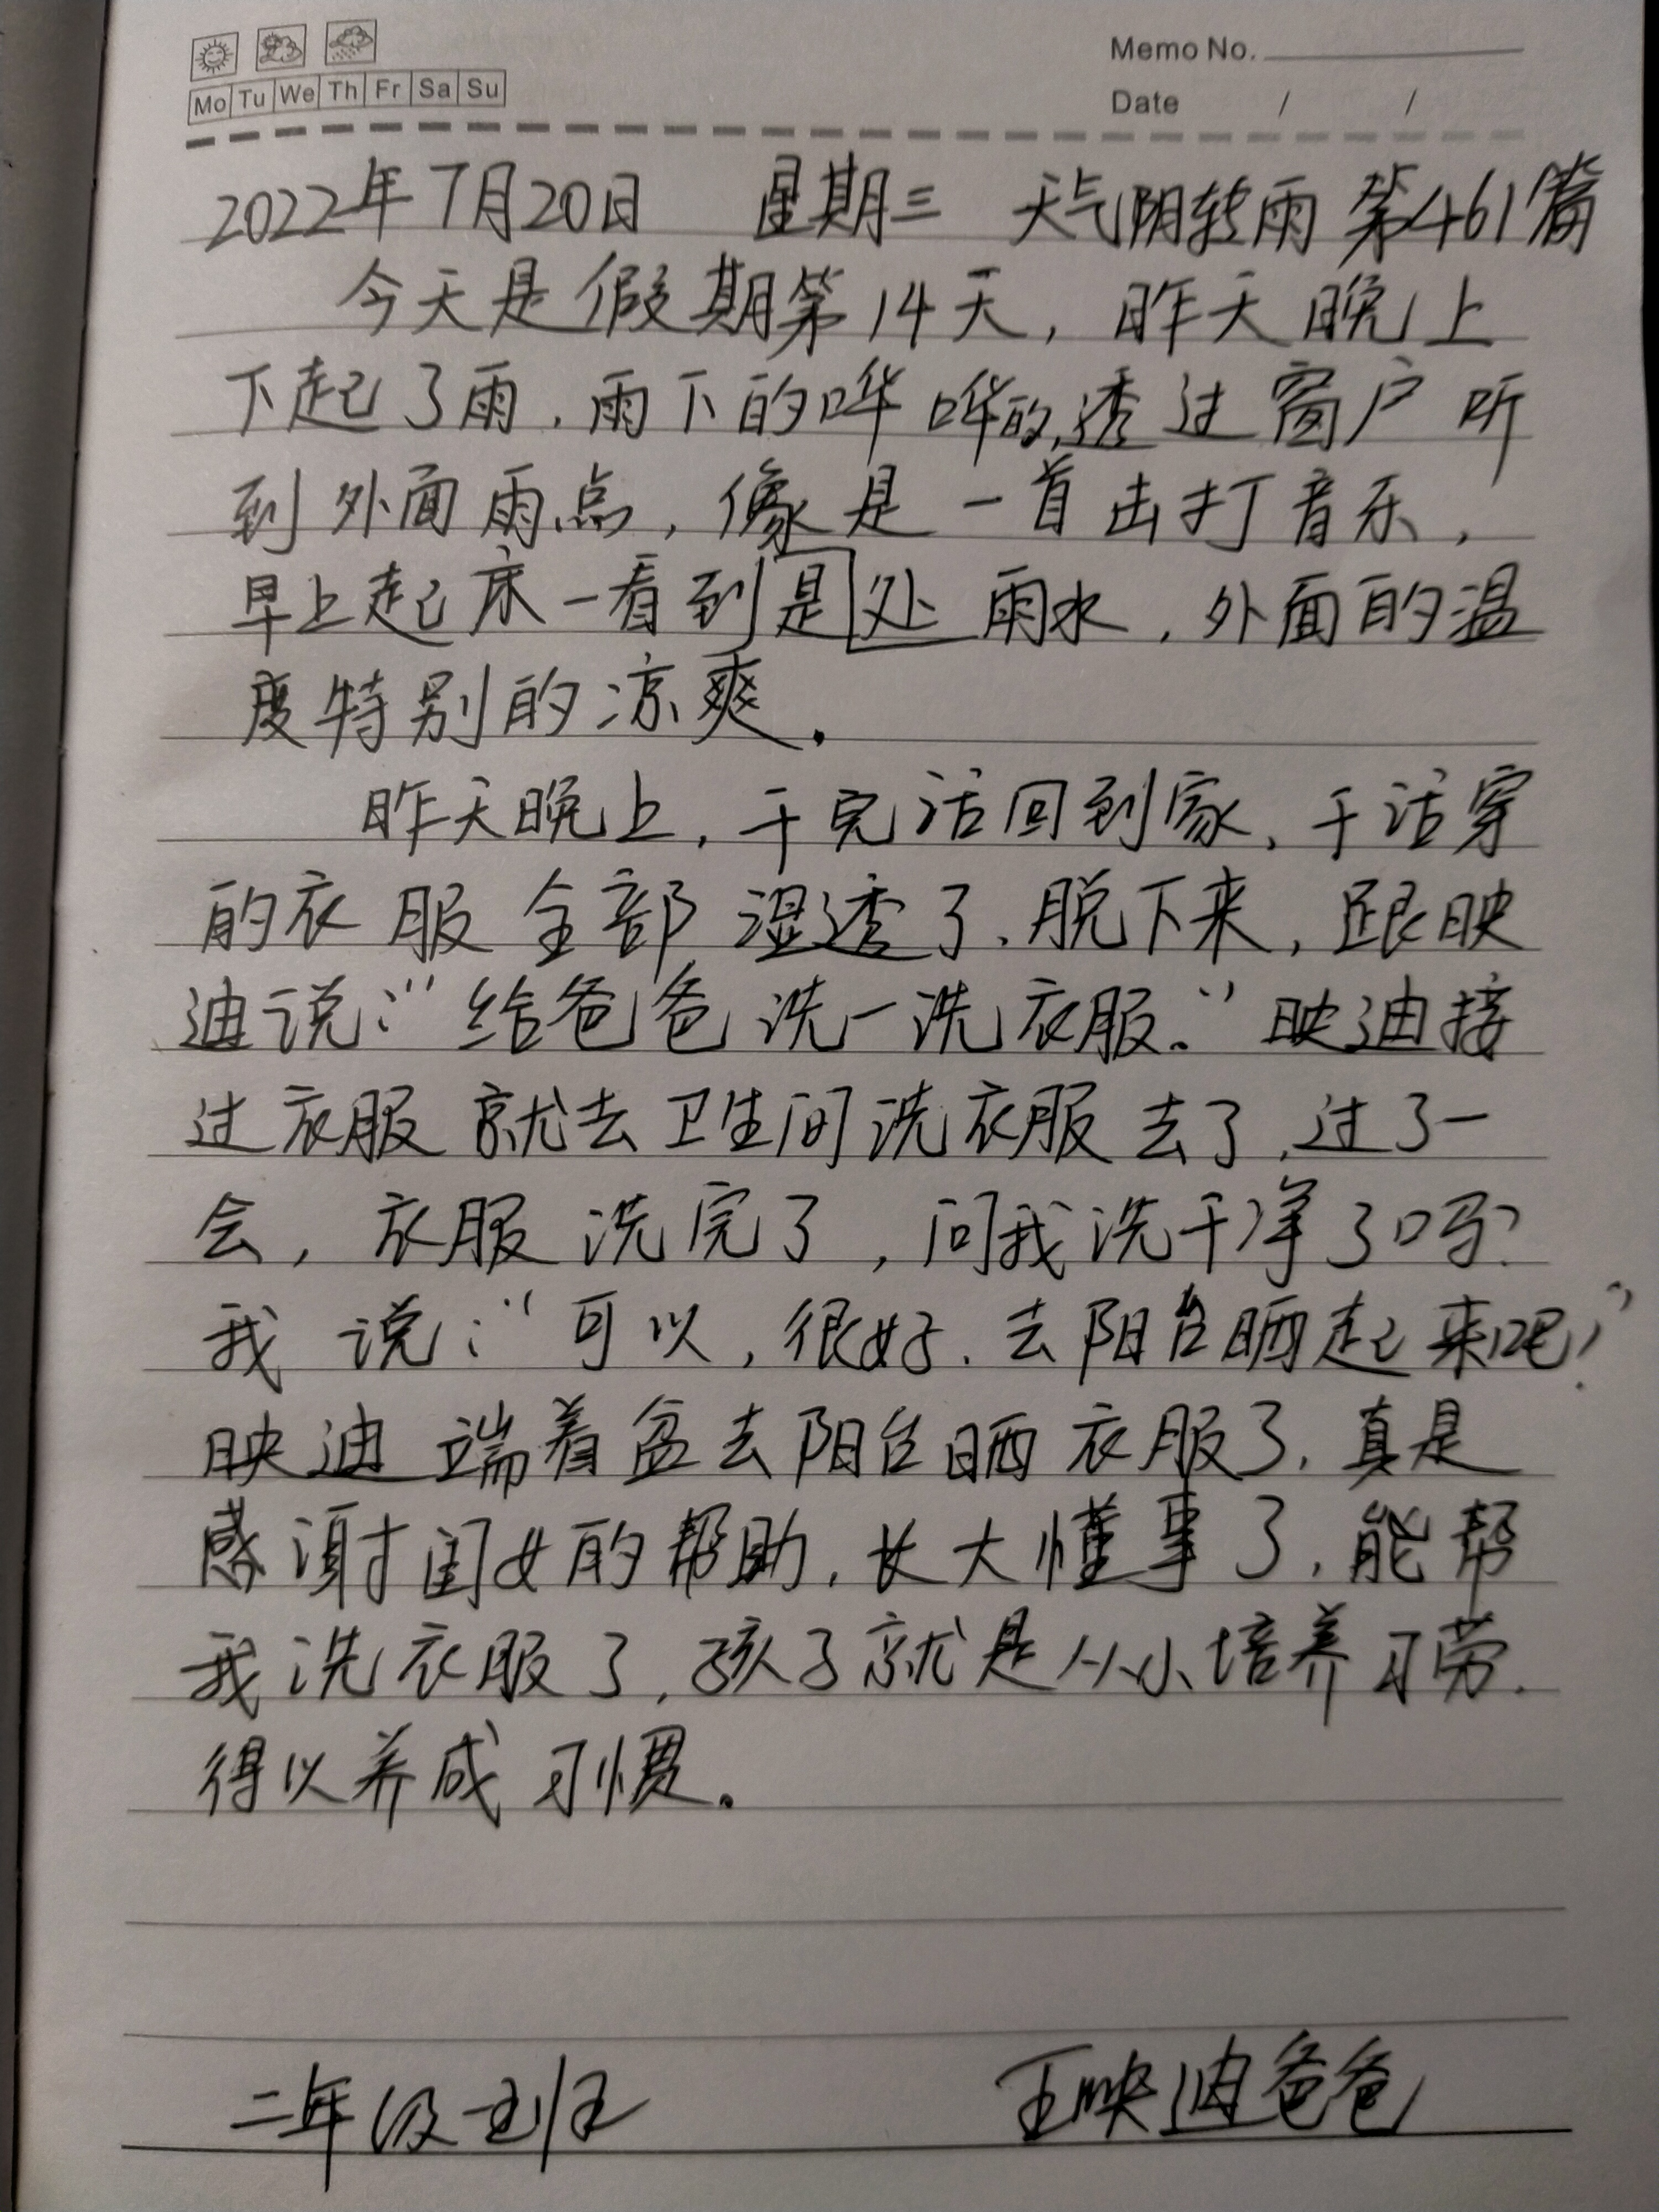 Memo No.
Mo Tu We Th Fr Sa Su
Date / /
2022年7月20日 星期三 天气阴转雨 第461篇
今天是假期第14天，昨天晚上
下起了雨，雨下的哗哗的，透过窗户听
到外面雨点，像是一首击打音乐，
早上起床一看到是处雨水，外面的温
度特别的凉爽．
昨天晚上，干完活回到家，干活穿
的衣服全部湿透了，脱下来，跟映
迪说：“给爸爸洗一洗衣服．”映迪接
过衣服就去卫生间洗衣服去了，过了一
会，衣服洗完了，问我洗干净了吗？
我说：“可以，很好，去阳台晒起来吧！”
映迪端着盆去阳台晒衣服了，真是
感谢闺女的帮助，长大懂事了，能帮
我洗衣服了，孩子就是从小培养习劳．
得以养成习惯．
二年级五班 王映迪爸爸